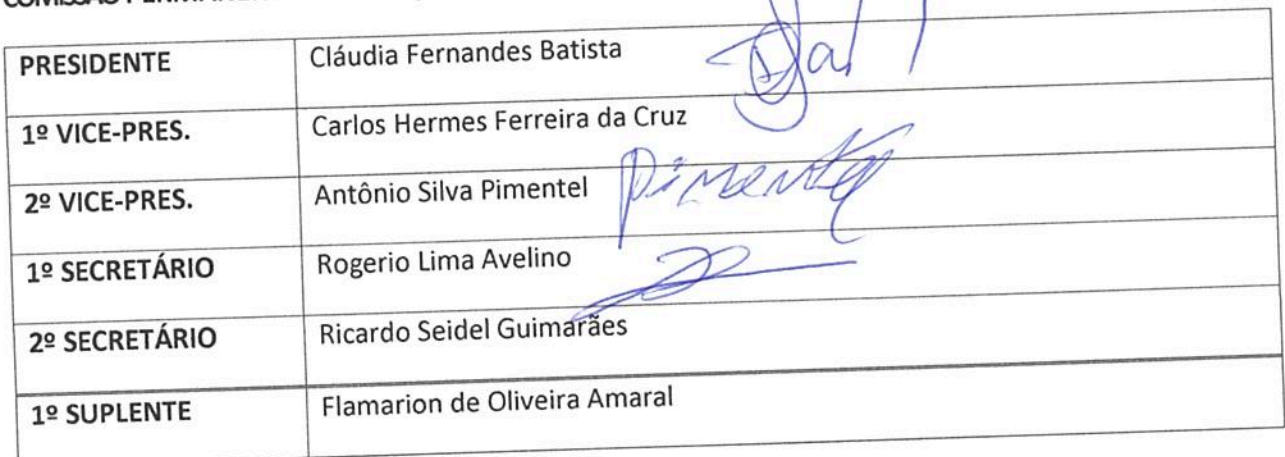 PRESIDENTE Cláudia Fernandes Batista
1º VICE-PRES. Carlos Hermes Ferreira da Cruz
2º VICE-PRES. Antônio Silva Pimentel Pimentel
1º SECRETÁRIO Rogerio Lima Avelino
2º SECRETÁRIO Ricardo Seidel Guimarães
1º SUPLENTE Flamarion de Oliveira Amaral